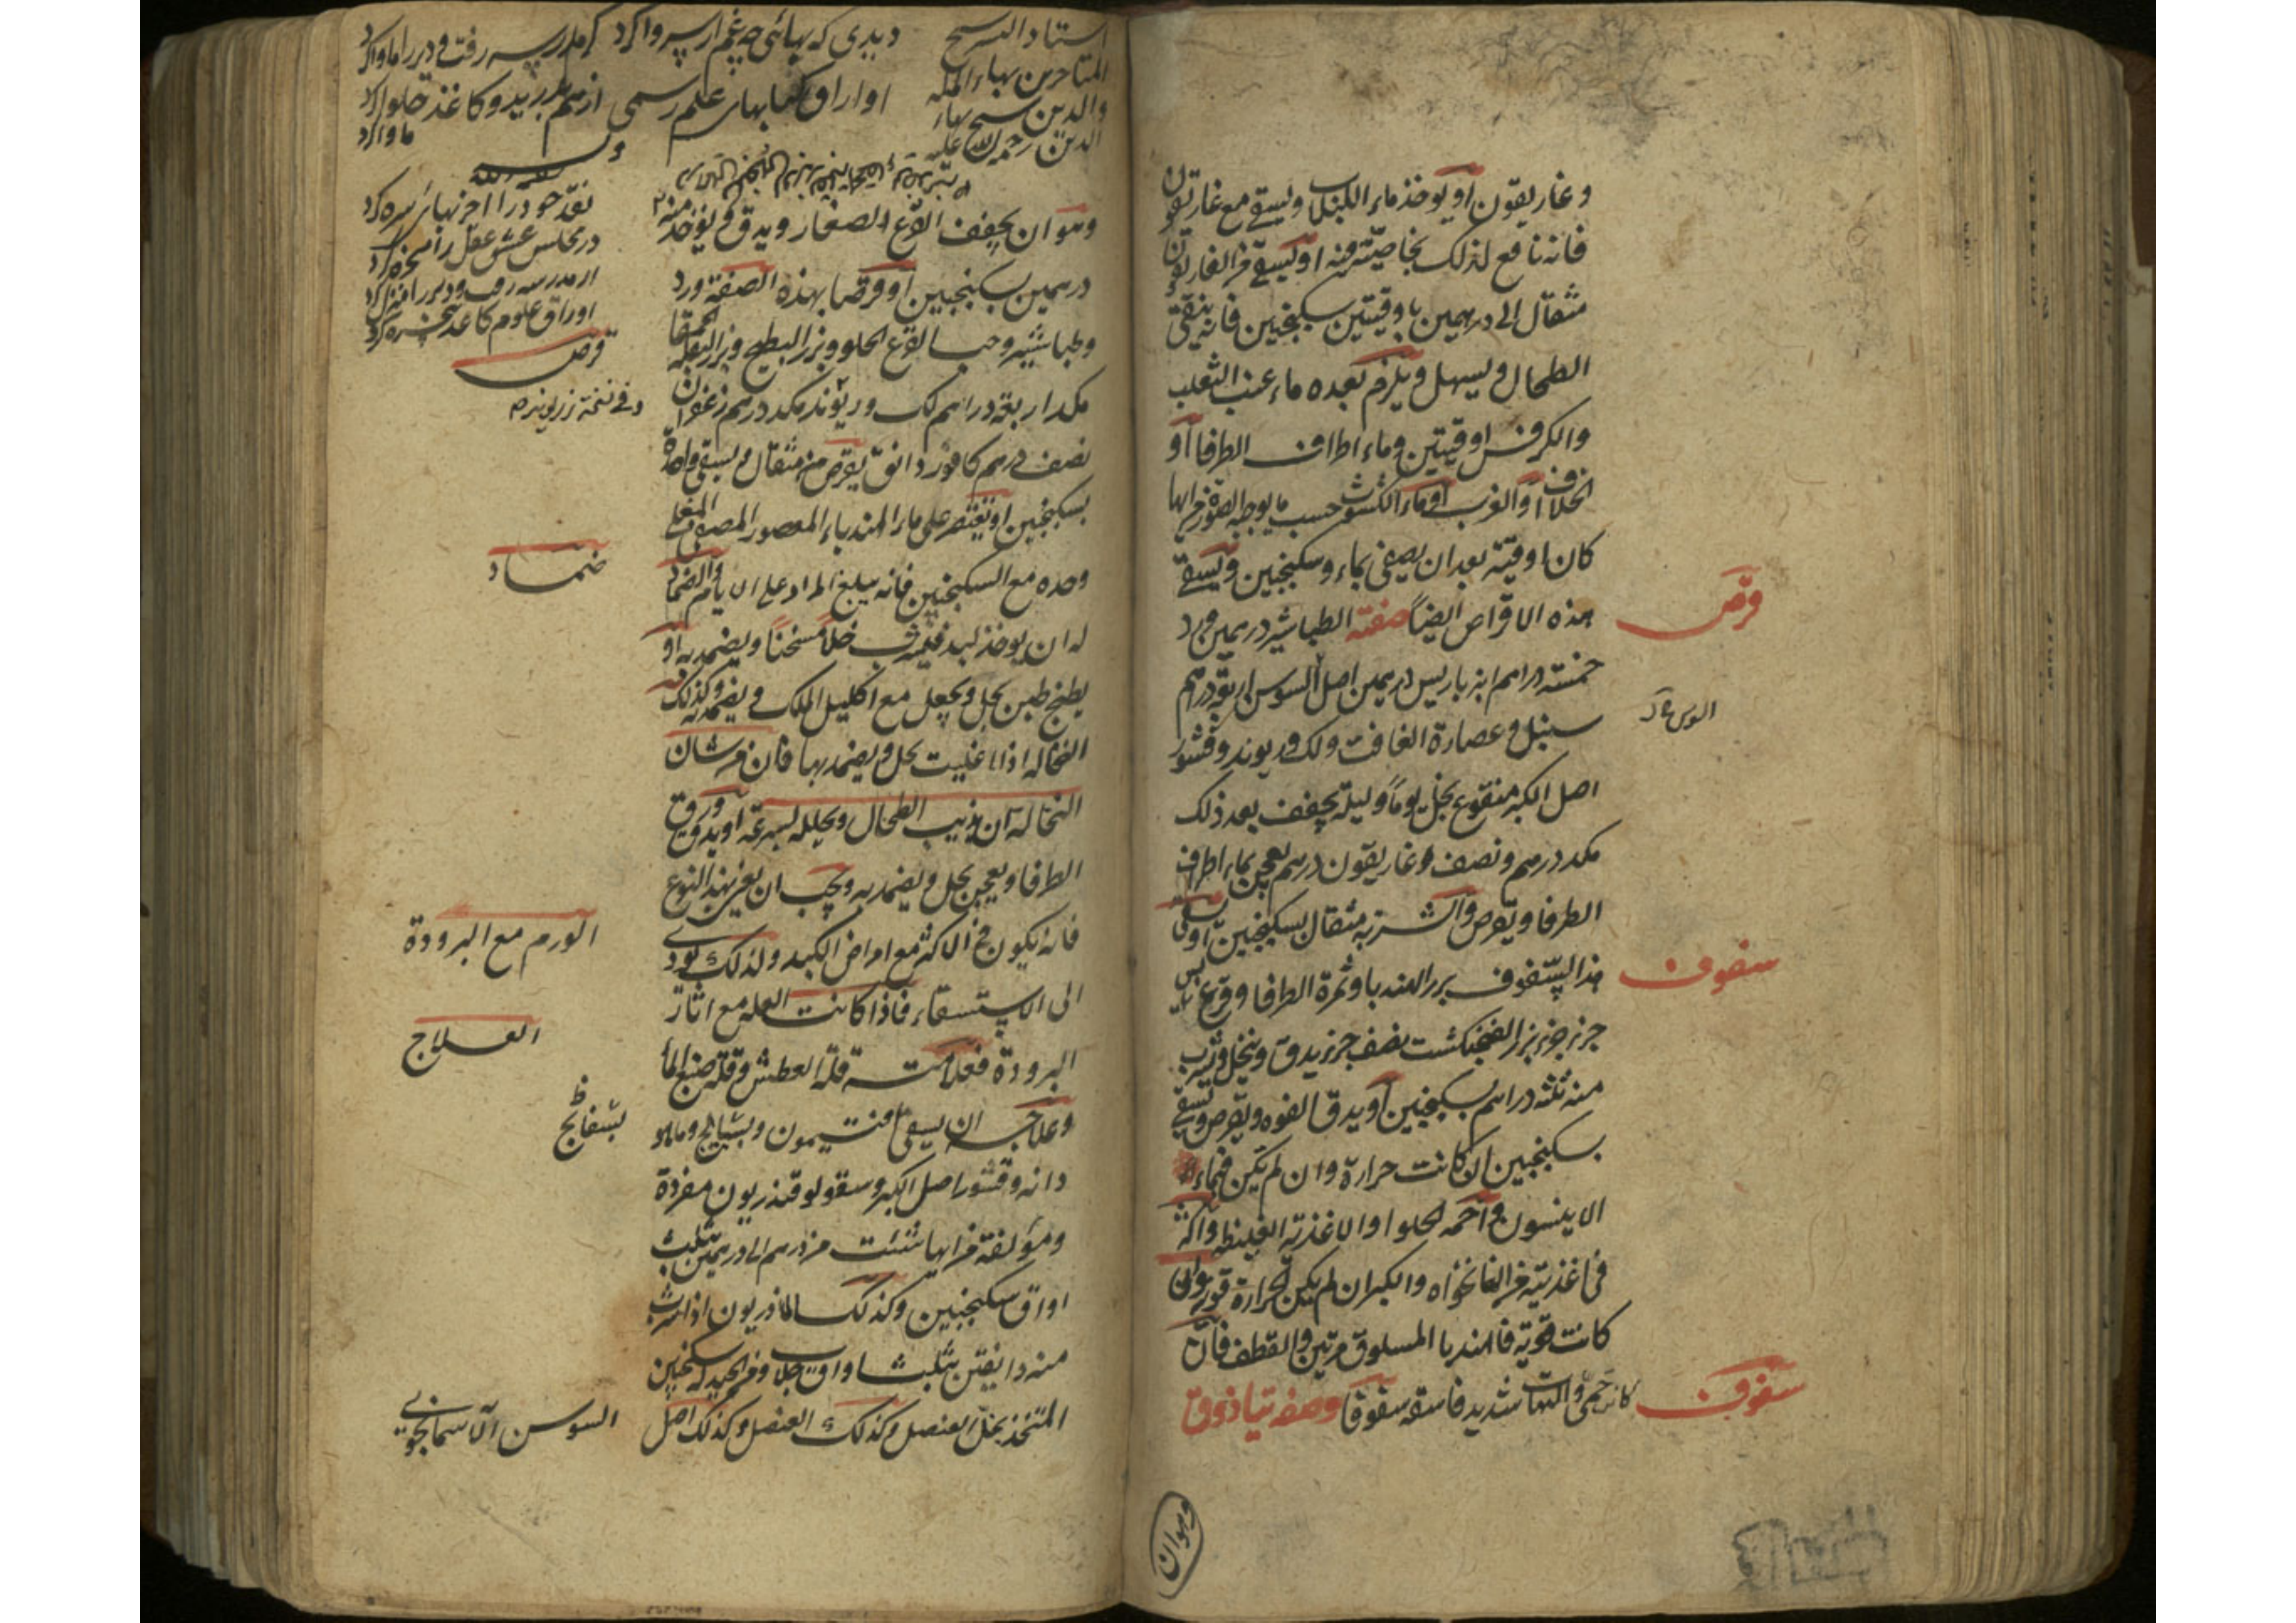 وغاريقون او يوخذ ماء الكبر ويسقى مع غاريقون
فانه نافع لذلك بخاصيته فيه او يسقى من الغاريقون
مثقال الى درهمين باوقيتين سكنجبين فانه ينقى
الطحال ويسهل ويلزم بعده ماء عنب الثعلب
والكرفس اوقيتين وماء اطراف الطرفا او
الخلاف او الغرب او ماء الكشوث حسب ما يوجبه الصورة من ايها
كان اوقية بعد ان يصفى بماء وسكنجبين ويسقى
قرص
هذه الاقراص ايضاً صفته الطباشير درهمين ورد
خمسة دراهم انبرباريس درهمين اصل السوس اربعة دراهم
سنبل وعصارة الغافت ولك وريوند وقشور
اصل الكبر منقوع بخل يوماً وليلة يجفف بعد ذلك
مكد درهم ونصف وغاريقون درهم يعجن بماء اطراف
الطرفا ويقرص والشربة مثقال بسكنجبين او يسقى
سفوف
هذا السفوف بزر الهندبا وثمرة الطرفا وقرع يابس
جزء جزء بزر الفنجنكشت نصف جزء يدق وينخل ويشرب
منه ثلثة دراهم بسكنجبين او يدق الفوه ويقرص ويسقى
بسكنجبين ان كانت حرارة وان لم تكن فبماء
الانيسون واحمه الحلوا والاغذية الغليظه واكثر
فى اغذيته من النانخواه والكبر ان لم يكن الحرارة قوية وان
كانت قوية فالهندبا المسلوق مرتين والقطف فان
سفوف
كانت حمى والتهاب شديد فاسقه سفوفا وصفه تياذوق
وهوان
استاد الشيخ
المتاخرين بهاء المله
والدين شيخ بهاء
الدين رحمة الله عليه
ديدى كه بهائى چه غم از سر وا كرد از مدرسه رفت و دير را ماوا كرد
اوراق كتابهاى علم رسمى از هم بدريد وكاغذ حلوا كرد
نقد خود را اخر بهائى سره كرد
در مجلس عشق عقل را مسخره كرد
از مدرسه رفت و دير را منزل كرد
اوراق علوم كاغذ پنجره كرد
وهو ان يجفف القرع الصغار ويدق ويوخذ منه
درهمين بسكنجبين او قرصا بهذه الصفة ورد
قرص
وطباشير وحب القرع الحلو وبزر البطيخ وبزر البقله الحمقا
مكد اربعة دراهم لك وريوند مكد درهم زعفران
نصف درهم كافور دانق يقرص من مثقال ويسقى واحدة
بسكنجبين او تقتصر على ماء الهندباء المعصور المصفى المغلى
ضماد
وحده مع السكنجبين فانه يبلغ المراد على الايام والضماد
له ان يوخذ لبد فيشرب خلاً مسخناً ويضمد به او
يطبخ طين بخل ويجعل مع اكليل الملك ويضمد به وكذلك
النخاله اذا غليت بخل ويضمد بها فان من شان
النخالة ان يذيب الطحال ويحلله بسرعة او يدق ورق
الطرفا ويعجن بخل ويضمد به ويجب ان يعنى بهذا النوع
فانه يكون فى الاكثر مع امراض الكبد ولذلك يودى
الورم مع البرودة
الى الاستسقاء فاذا كانت العله مع اثار
العلاج
البرودة فعلامته قلة العطش وقلة صبغ الماء
بسفايج
وعلاجه ان يسقى افتيمون وبسفايج وماهو
دانه وقشور اصل الكبر وسقولوقندريون مفردة
ومؤلفة من ايها شئت من درهم الى درهمين بثلث
اواق سكنجبين وكذلك الماذريون اذا شرب
منه دانقين بثلث اواق جلاب ومن الجيد له سكنجبين
السوسن الآسمانجونى
المتخذ بخل العنصل وكذلك العنصل وكذلك اصل